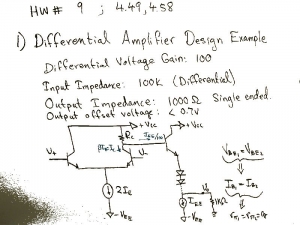 HW# 9 ; 4.49, 4.58
1) Differential Amplifier Design Example
Differential Voltage Gain: 100
Input Impedance: 100K (Differential)
Output Impedance: 1000Ω Single ended.
Output offset voltage: < 0.7V
+Vcc
+Vcc
Rc
2IE
-VEE
IEE
-VEE
1KΩ
VBE1 = VBE2
IB1 = IB2
rπ1 = rπ2 = rπ